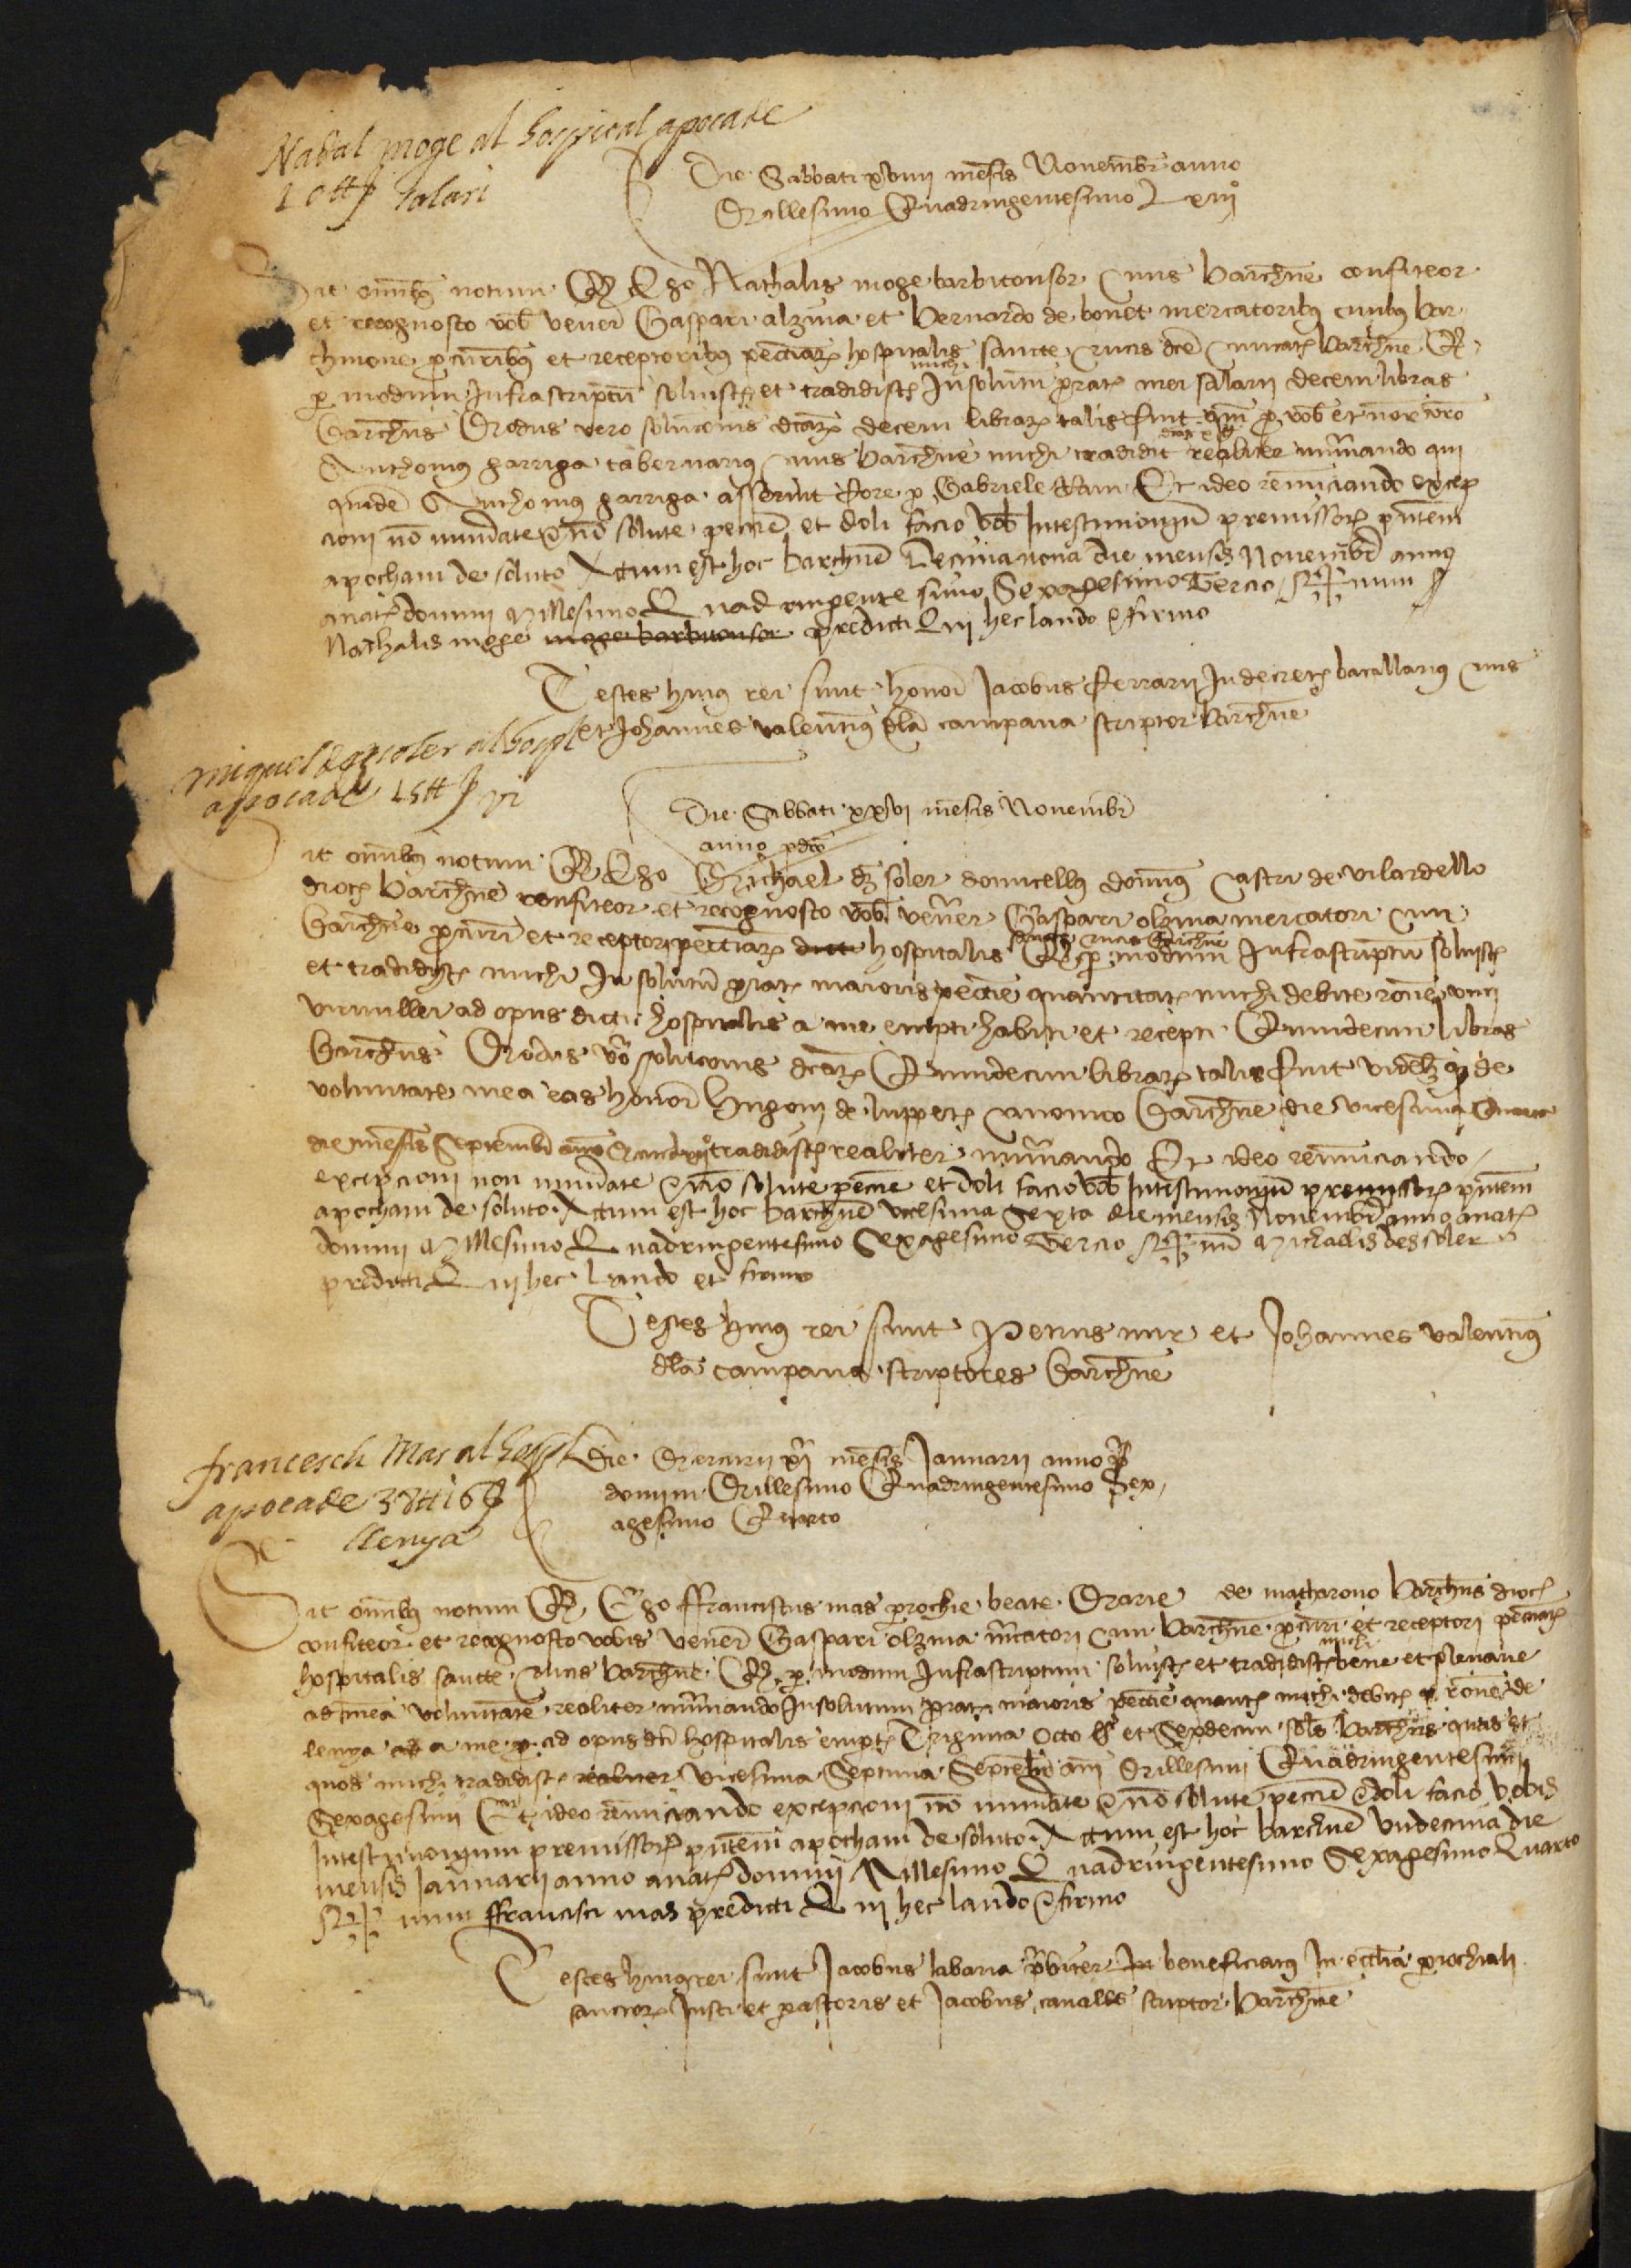 Nadal moge al hospital apocade
10 tt ſ salari
Die Sabbati xviiii mēsis Novembr̄ anno
Millesimo Quadringentesimo Lxiiiº
Sit omīb; notum Qd Ego Nathalis moge barbitonsor civis barchn̄e confiteor
et recognosco vob̄ vener̄ Gaspari alzina et Bernardo de bonet mercatorib; civib; bar
chinone procur̄ib; et receptorib; peccuniar̄ hospitalis sancte crucis dcē civitat̄ barchn̄e Qd
p modum Infrascriptū solvist̄ michi et tradidist̄ In solutū prorat̄ mei salarii decem libras
barchn̄s Modus vero soluc̄onis dc̄ar̄ decem librar̄ talis fuit qm̄ p vob̄ et
Anthonius garriga tabernarius civis barchn̄e michi tradidit realiter num̄ando qui
quidē Anthonius garriga asseruit fore p Gabriele Ram Et ideo renūciando excep
cioni nō numerate & nō solute peccn̄ie et doli facio vob̄ In testimoniū premissor̄ pn̄tem
apocham de soluto Actum est hoc barchn̄e Decimanona die mensis Novembr̄ anno
a nat̄ domini Millesimo Quadringentesimo Sexagesimo Tercio Sig+num
Nathalis moge moge barbitonsor predicti Qui hec laudo & firmo
Testes huius rei sunt honor̄ Jacobus Ferrarii In decret̄ bacallarius civis
et Johannes valentin̄ sa campana scriptor barchn̄e
miquel dez soler al hospl
apocade 15 tt ſ vi
Die Sabbati xxvi mēsis Novembr̄
anno pdc̄o
Sit omīb; notum Qd Ego Michael dez soler domicellus dominus castri de vilardello
dioc̄ barchn̄e confiteor et recognosco vob̄ vener̄ Gaspari olzina mercatori civi
barchn̄e procur̄i et receptori pecc̄niar̄ dicti hospitalis sancte crucis barchn̄e Qd p modum Infrascriptū solvist̄
et tradidist̄ michi In solutū prorat̄ maioris pecc̄nie quantitat̄ michi debite rōne vini
vermillei ad opus dicti hospitalis a me empti habiti et recepti Quindecim libras
barchn̄s Modus v̄o soluc̄onis dc̄ar̄ Quindecim librar̄ talis fuit videlz q de
voluntate mea eas honor̄ Hugoni de luppet̄ canonico barchn̄e die vicesima Quarta
die mēsis Septembr̄ tradidist̄ realiter num̄ando Et ideo renūciando
excepcioni non numerate & nō solute pecc̄nie et doli facio vob̄ In testimoniū premissor̄ pn̄tem
apocham de soluto Actum est hoc barchn̄e vicesima Sexta die mensis Novembr̄ anno a nat̄
domini Millesimo Quadringentesimo Sexagesimo Tercio Sig+nū Michaelis dez soler
predicti Qui hec Laudo et firmo
Testes huius rei sunt Petrus mir et Johannes valentin̄
sa campana scriptores barchn̄e
francesch Mas al hospl
apocade 38 tt 16 ſ
llenya
Die Mercurii xi mēsis Januarii anno
domini Millesimo Quadringentesimo Sex
agesimo Quarto
Sit omīb; notum Qd Ego ffranciscus mas parrochie beate Marie de matharono barchn̄s dioc̄
confiteor et recognosco vobis vener̄ Gaspari olzina m̄catori civi barchn̄e procur̄i et receptori pecc̄niar̄
hospitalis sancte crucis barchn̄e Qd p modum Infrascriptum solvist̄ et tradidist̄ michi bene et plenarie
ad meā voluntate realiter num̄ando In solutum prorat̄ maioris pecc̄nie quant̄ michi debit̄ rōne de
lenya ad a me ad opus dc̄i hospitalis empt̄ Triginta Octo lb̄ et Sexdecim sol̄s barchn̄s quas et
quos michi tradidist̄ realiter vicesima Septima Septembr̄ añi Millesimi Quadringentesimi
Sexagesimi Et ideo renūciando excepcioni nō numerate & nō solute pecc̄nie & doli facio vobis
In testimonium premissor̄ pn̄tem apocham de soluto Actum est hoc barchn̄e Undecima die
mensis Januarii anno a nat̄ domini Millesimo Quadringentesimo Sexagesimo Quarto
Sig+num ffrancisci mas predicti Qui hec laudo & firmo
Testes huius rei sunt Jacobus labaria prb̄iter In beneficiatus In ecc̄lia parrochiali
sanctor̄ Justi et pastoris et Jacobus canalls scriptor barchn̄e